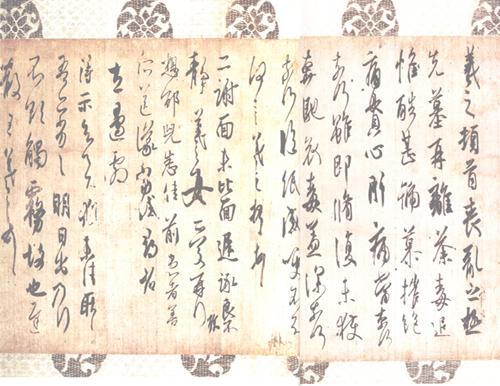 羲之頓首喪亂之極
先墓再離荼毒追
惟酷甚號慕摧絕
痛貫心肝痛當奈何
奈何雖即脩復未獲
奔馳哀毒益深奈何
奈何臨紙感哽不知
何言羲之頓首頓首
二謝面未比面遲詠良不
靜羲之女愛再拜
想邰兒悉佳前患者善
所送議當試尋省
左邊劇
得示知足下猶未佳耿
耿吾亦劣劣明日出乃行
不欲觸霧故也遲
散王羲之頓首